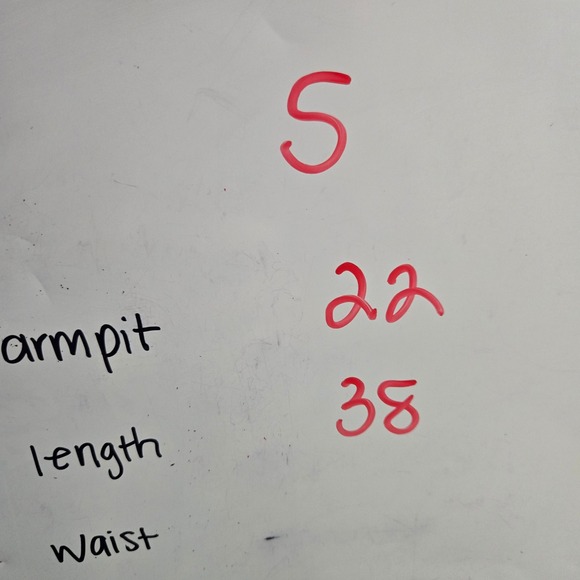 S
armpit 22
length 38
waist